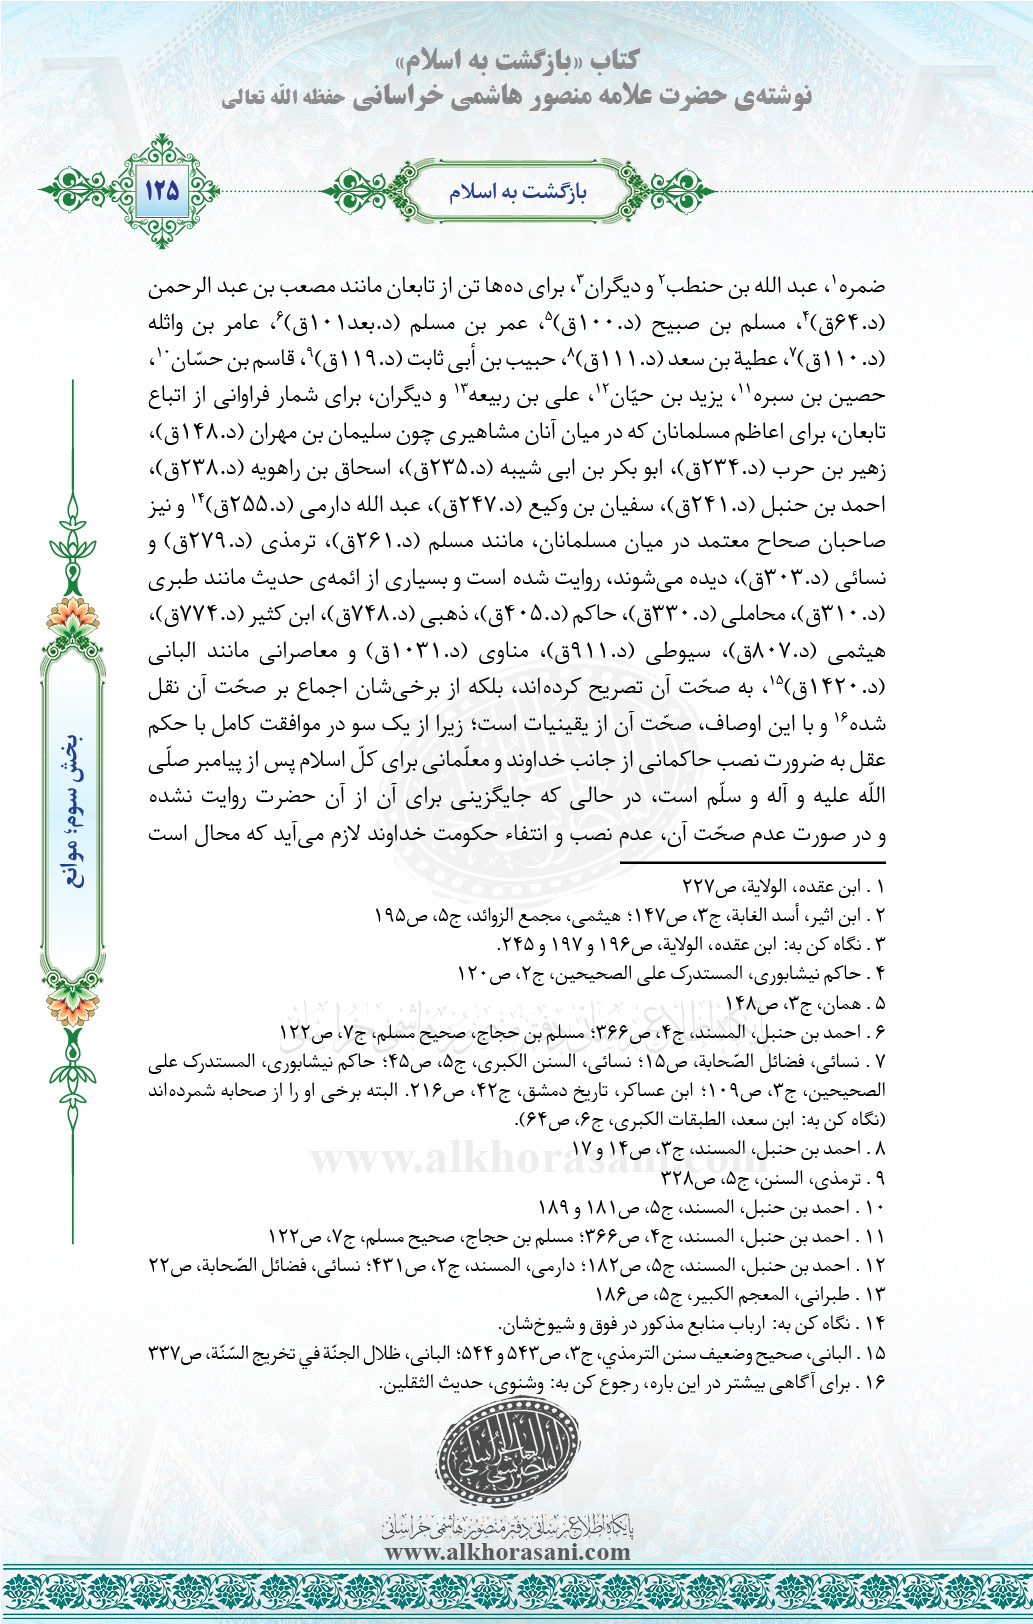 کتاب «بازگشت به اسلام»
نوشته‌ی حضرت علامه منصور هاشمی خراسانی حفظه اللّه تعالی
بازگشت به اسلام
۱۲۵
ضمره۱، عبد الله بن حنطب۲ و دیگران۳، برای ده‌ها تن از تابعان مانند مصعب بن عبد الرحمن
(د.۶۴ق)۴، مسلم بن صبیح (د.۱۰۰ق)۵، عمر بن مسلم (د.بعد۱۰۱ق)۶، عامر بن واثله
(د.۱۱۰ق)۷، عطیة بن سعد (د.۱۱۱ق)۸، حبیب بن أبی ثابت (د.۱۱۹ق)۹، قاسم بن حسّان۱۰،
حصین بن سبره۱۱، یزید بن حیّان۱۲، علی بن ربیعه۱۳ و دیگران، برای شمار فراوانی از اتباع
تابعان، برای اعاظم مسلمانان که در میان آنان مشاهیری چون سلیمان بن مهران (د.۱۴۸ق)،
زهیر بن حرب (د.۲۳۴ق)، ابو بکر بن ابی شیبه (د.۲۳۵ق)، اسحاق بن راهویه (د.۲۳۸ق)،
احمد بن حنبل (د.۲۴۱ق)، سفیان بن وکیع (د.۲۴۷ق)، عبد الله دارمی (د.۲۵۵ق)۱۴ و نیز
صاحبان صحاح معتمد در میان مسلمانان، مانند مسلم (د.۲۶۱ق)، ترمذی (د.۲۷۹ق) و
نسائی (د.۳۰۳ق)، دیده می‌شوند، روایت شده است و بسیاری از ائمه‌ی حدیث مانند طبری
(د.۳۱۰ق)، محاملی (د.۳۳۰ق)، حاکم (د.۴۰۵ق)، ذهبی (د.۷۴۸ق)، ابن کثیر (د.۷۷۴ق)،
هیثمی (د.۸۰۷ق)، سیوطی (د.۹۱۱ق)، مناوی (د.۱۰۳۱ق) و معاصرانی مانند البانی
(د.۱۴۲۰ق)۱۵، به صحّت آن تصریح کرده‌اند، بلکه از برخی‌شان اجماع بر صحّت آن نقل
شده۱۶ و با این اوصاف، صحّت آن از یقینیات است؛ زیرا از یک سو در موافقت کامل با حکم
عقل به ضرورت نصب حاکمانی از جانب خداوند و معلّمانی برای کلّ اسلام پس از پیامبر صلّی
اللّه علیه و آله و سلّم است، در حالی که جایگزینی برای آن از آن حضرت روایت نشده
و در صورت عدم صحّت آن، عدم نصب و انتفاء حکومت خداوند لازم می‌آید که محال است
۱ . ابن عقده، الولایة، ص۲۲۷
۲ . ابن اثیر، أسد الغابة، ج۳، ص۱۴۷؛ هیثمی، مجمع الزوائد، ج۵، ص۱۹۵
۳ . نگاه کن به: ابن عقده، الولایة، ص۱۹۶ و ۱۹۷ و ۲۴۵.
۴ . حاکم نیشابوری، المستدرک علی الصحیحین، ج۲، ص۱۲۰
۵ . همان، ج۳، ص۱۴۸
۶ . احمد بن حنبل، المسند، ج۴، ص۳۶۶؛ مسلم بن حجاج، صحیح مسلم، ج۷، ص۱۲۲
۷ . نسائی، فضائل الصّحابة، ص۱۵؛ نسائی، السنن الکبری، ج۵، ص۴۵؛ حاکم نیشابوری، المستدرک علی
الصحیحین، ج۳، ص۱۰۹؛ ابن عساکر، تاریخ دمشق، ج۴۲، ص۲۱۶. البته برخی او را از صحابه شمرده‌اند
(نگاه کن به: ابن سعد، الطبقات الکبری، ج۶، ص۶۴).
۸ . احمد بن حنبل، المسند، ج۳، ص۱۴ و ۱۷
۹ . ترمذی، السنن، ج۵، ص۳۲۸
۱۰ . احمد بن حنبل، المسند، ج۵، ص۱۸۱ و ۱۸۹
۱۱ . احمد بن حنبل، المسند، ج۴، ص۳۶۶؛ مسلم بن حجاج، صحیح مسلم، ج۷، ص۱۲۲
۱۲ . احمد بن حنبل، المسند، ج۵، ص۱۸۲؛ دارمی، المسند، ج۲، ص۴۳۱؛ نسائی، فضائل الصّحابة، ص۲۲
۱۳ . طبرانی، المعجم الکبیر، ج۵، ص۱۸۶
۱۴ . نگاه کن به: ارباب منابع مذکور در فوق و شیوخ‌شان.
۱۵ . البانی، صحیح وضعیف سنن الترمذي، ج۳، ص۵۴۳ و ۵۴۴؛ البانی، ظلال الجنّة في تخریج السّنّة، ص۳۳۷
۱۶ . برای آگاهی بیشتر در این باره، رجوع کن به: وشنوی، حدیث الثقلین.
بخش سوم؛ موانع
www.alkhorasani.com
پایگاه اطلاع رسانی دفتر منصور هاشمی خراسانی
www.alkhorasani.com